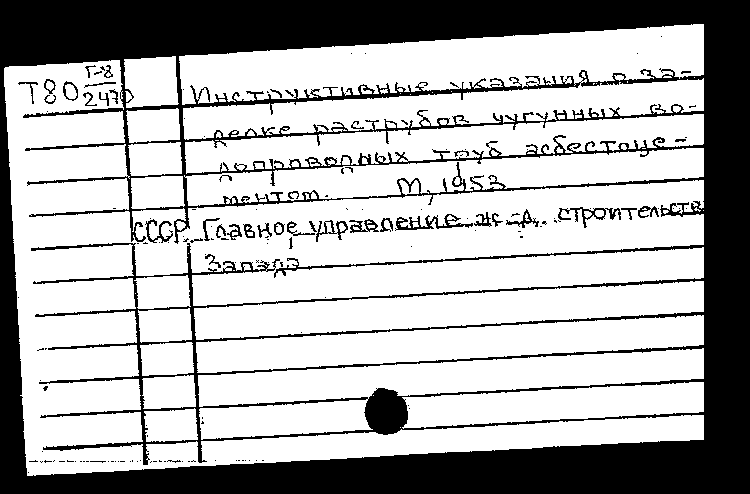 Т80 Г-8
2470
Инструктивные указания о за-
делке раструбов чугунных во-
допроводных труб асбестоце-
ментом. М, 1953
СССР. Главное управление ж.-д. строительств
Запада